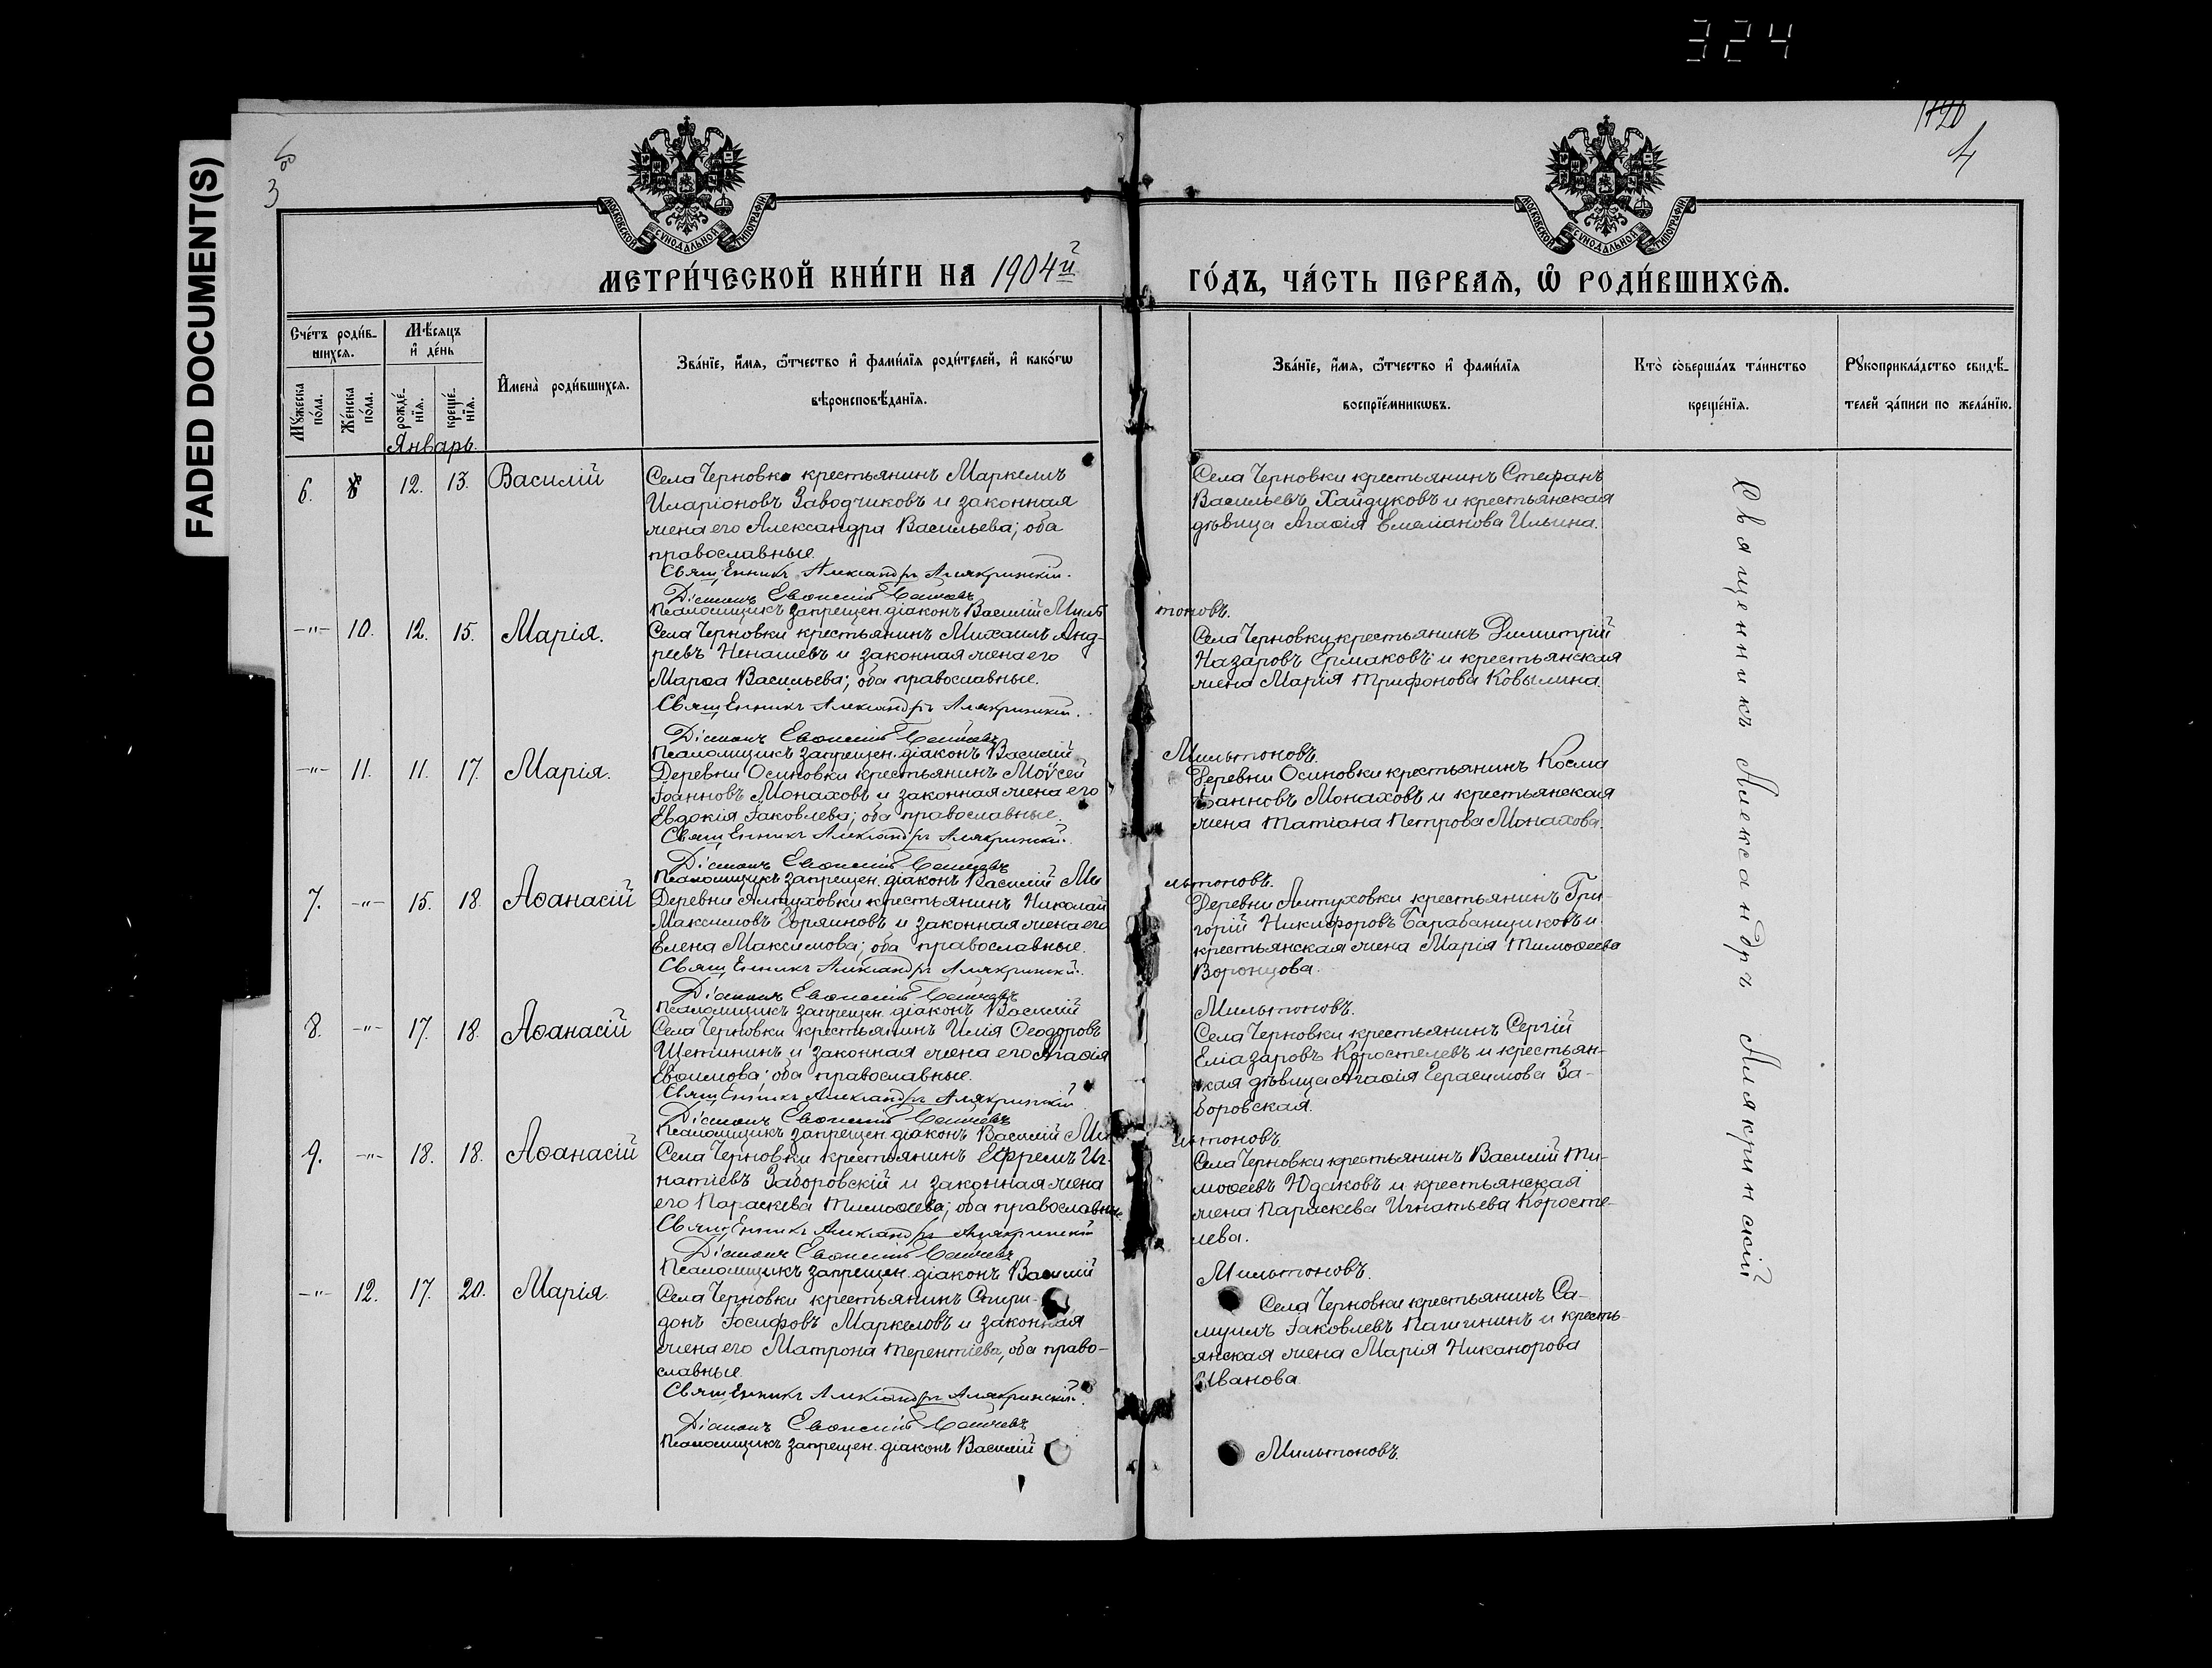 324
FADED DOCUMENT(S)
3
1720
4
МОСКОВСКОЙ СѴНОДАЛЬНОЙ ТИПОГРАФІИ
МОСКОВСКОЙ СѴНОДАЛЬНОЙ ТИПОГРАФІИ
МЕТРИ́ЧЕСКОЙ КНИ́ГИ НА 1904й
ГО́ДЪ, ЧА́СТЬ ПЕРВАЯ, Ѽ РОДИ́ВШИХСЯ.
Сче́тъ роди́в-
шихся.
Мꙋ́жеска по́ла.
Же́нска по́ла.
Мѣ́сяцъ
и҆ де́нь
рожде́-нїя.
креще́-нїя.
И҆мена̀ роди́вшихся.
Зва́нїе, и҆́мя, ѻ҆́тчество и҆ фами́лїя роди́телей, и҆ како́гѡ
вѣроисповѣ́данїя.
Зва́нїе, и҆́мя, ѻ҆́тчество и҆ фами́лїя
воспрїе́мникѡвъ.
Кто̀ соверша́лъ та́инство
креще́нїя.
Рꙋкоприкла́дство свидѣ́-
телей за́писи по жела́нїю.
Январь.
6. 12. 13. Василій
Села Черновки крестьянинъ Маркеллъ
Иларіоновъ Заводчиковъ и законная
жена его Александра Васильева; оба
православные.
Священникъ Александръ Алякринскій.
Діаконъ Евѳимій
Псаломщикъ запрещен. діаконъ Василій Миль
тоновъ.
Села Черновки крестьянинъ Стефанъ
Васильевъ Хайдуковъ и крестьянская
дѣвица Агаѳія Емеліанова Ильина.
-"- 10. 12. 15. Марія.
Села Черновки крестьянинъ Михаилъ Анд-
реевъ Ненашевъ и законная жена его
Марѳа Васильева; оба православные.
Священникъ Александръ Алякринскій.
Діаконъ Евѳимій
Псаломщикъ запрещен. діаконъ Василій
Мильтоновъ.
Села Черновки крестьянинъ Димитрій
Назаровъ Ермаковъ и крестьянская
жена Марія Трифонова Ковылина.
-"- 11. 11. 17. Марія.
Деревни Осиновки крестьянинъ Моѵсей
Іоанновъ Монаховъ и законная жена его
Евдокія Іаковлева; оба православные.
Священникъ Александръ Алякринскій.
Діаконъ Евѳимій
Псаломщикъ запрещен. діаконъ Василій Ми
льтоновъ.
Деревни Осиновки крестьянинъ Косма
Іоанновъ Монаховъ и крестьянская
жена Татіана Петрова Монахова.
7. -"- 15. 18. Аѳанасій
Деревни Алтуховки крестьянинъ Николай
Максимовъ Горяиновъ и законная жена его
Елена Максимова; оба православные.
Священникъ Александръ Алякринскій.
Діаконъ Евѳимій
Псаломщикъ запрещен. діаконъ Василій
Мильтоновъ.
Деревни Алтуховки крестьянинъ Гри-
горій Никифоровъ Барабанщиковъ и
крестьянская жена Марія Тимоѳеева
Воронцова.
8. -"- 17. 18. Аѳанасій
Села Черновки крестьянинъ Илія Ѳеодоровъ
Щетининъ и законная жена его Агаѳія
Евѳимова; оба православные.
Священникъ Александръ Алякринскій
Діаконъ Евѳимій
Псаломщикъ запрещен. діаконъ Василій Ми
льтоновъ
Села Черновки крестьянинъ Сергій
Еліазаровъ Коростелевъ и крестьян-
ская дѣвица Агаѳія Герасимова За-
боровская.
9. -"- 18. 18. Аѳанасій
Села Черновки крестьянинъ Ефремъ Иг-
натіевъ Заборовскій и законная жена
его Параскева Тимоѳеева; оба православные.
Священникъ Александръ Алякринскій
Діаконъ Евѳимій
Псаломщикъ запрещен. діаконъ Василій
Мильтоновъ.
Села Черновки крестьянинъ Василій Ти-
моѳеевъ Юдаковъ и крестьянская
жена Параскева Игнатьева Коросте-
лева.
-"- 12. 17. 20. Марія.
Села Черновки крестьянинъ Спири-
донъ Іосифовъ Маркеловъ и законная
жена его Матрона Терентіева, оба право-
славные.
Священникъ Александръ Алякринскій.
Діаконъ Евѳимій
Псаломщикъ запрещен. діаконъ Василій
Мильтоновъ.
Села Черновки крестьянинъ Са-
муилъ Іаковлевъ Пашининъ и кресть-
янская жена Марія Никанорова
Иванова.
Священникъ Александръ Алякринскій